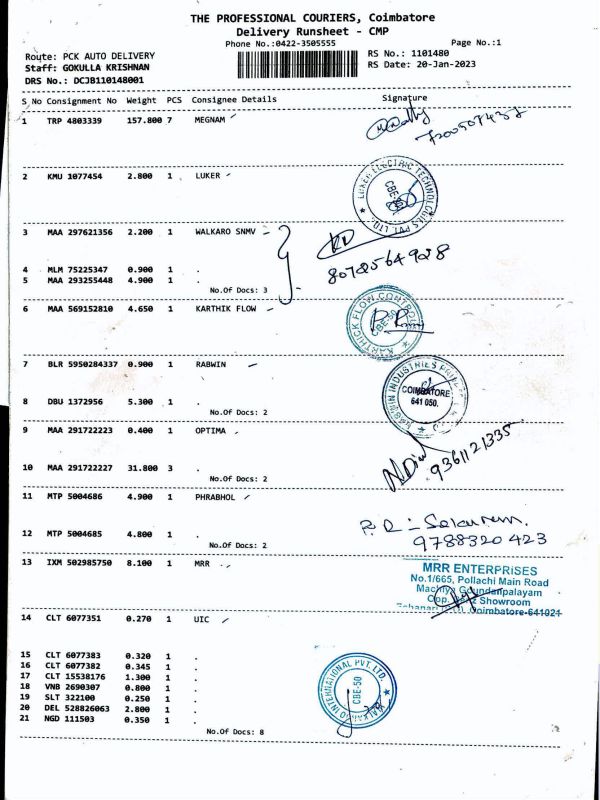 THE PROFESSIONAL COURIERS, Coimbatore
Delivery Runsheet - CMP
Phone No.:0422-3505555 Page No.:1
Route: PCK AUTO DELIVERY RS No.: 1101480
Staff: GOKULLA KRISHNAN RS Date: 20-Jan-2023
DRS No.: DCJB110148001
S No Consignment No Weight PCS Consignee Details Signature
1 TRP 4803339 157.800 7 MEGNAM
2 KMU 1077454 2.800 1 LUKER
LUKER ELECTRIC TECHNOLOGIES PVT. LTD.
CBE-50
3 MAA 297621356 2.200 1 WALKARO SNMV
4 MLM 75225347 0.900 1 .
5 MAA 293255448 4.900 1 .
No.Of Docs: 3
6 MAA 569152810 4.650 1 KARTHIK FLOW
KARTHICK FLOW CONTROL
CBE-50
7 BLR 5950284337 0.900 1 RABWIN
INDUSTRIES
COIMBATORE
641 050.
8 DBU 1372956 5.300 1 .
No.Of Docs: 2
9 MAA 291722223 0.400 1 OPTIMA
9361121335
10 MAA 291722227 31.800 3 .
No.Of Docs: 2
11 MTP 5004686 4.900 1 PHRABHOL
9788320423
12 MTP 5004685 4.800 1 .
No.Of Docs: 2
13 IXM 502985750 8.100 1 MRR
MRR ENTERPRISES
No.1/665, Pollachi Main Road
Showroom
Coimbatore-641021
14 CLT 6077351 0.270 1 UIC
15 CLT 6077383 0.320 1 .
16 CLT 6077382 0.345 1 .
17 CLT 15538176 1.300 1 .
18 VNB 2690307 0.800 1 .
19 SLT 322100 0.250 1 .
20 DEL 528826063 2.800 1 .
21 NGD 111503 0.350 1 .
INTERNATIONAL PVT. LTD.
CBE-50
No.Of Docs: 8